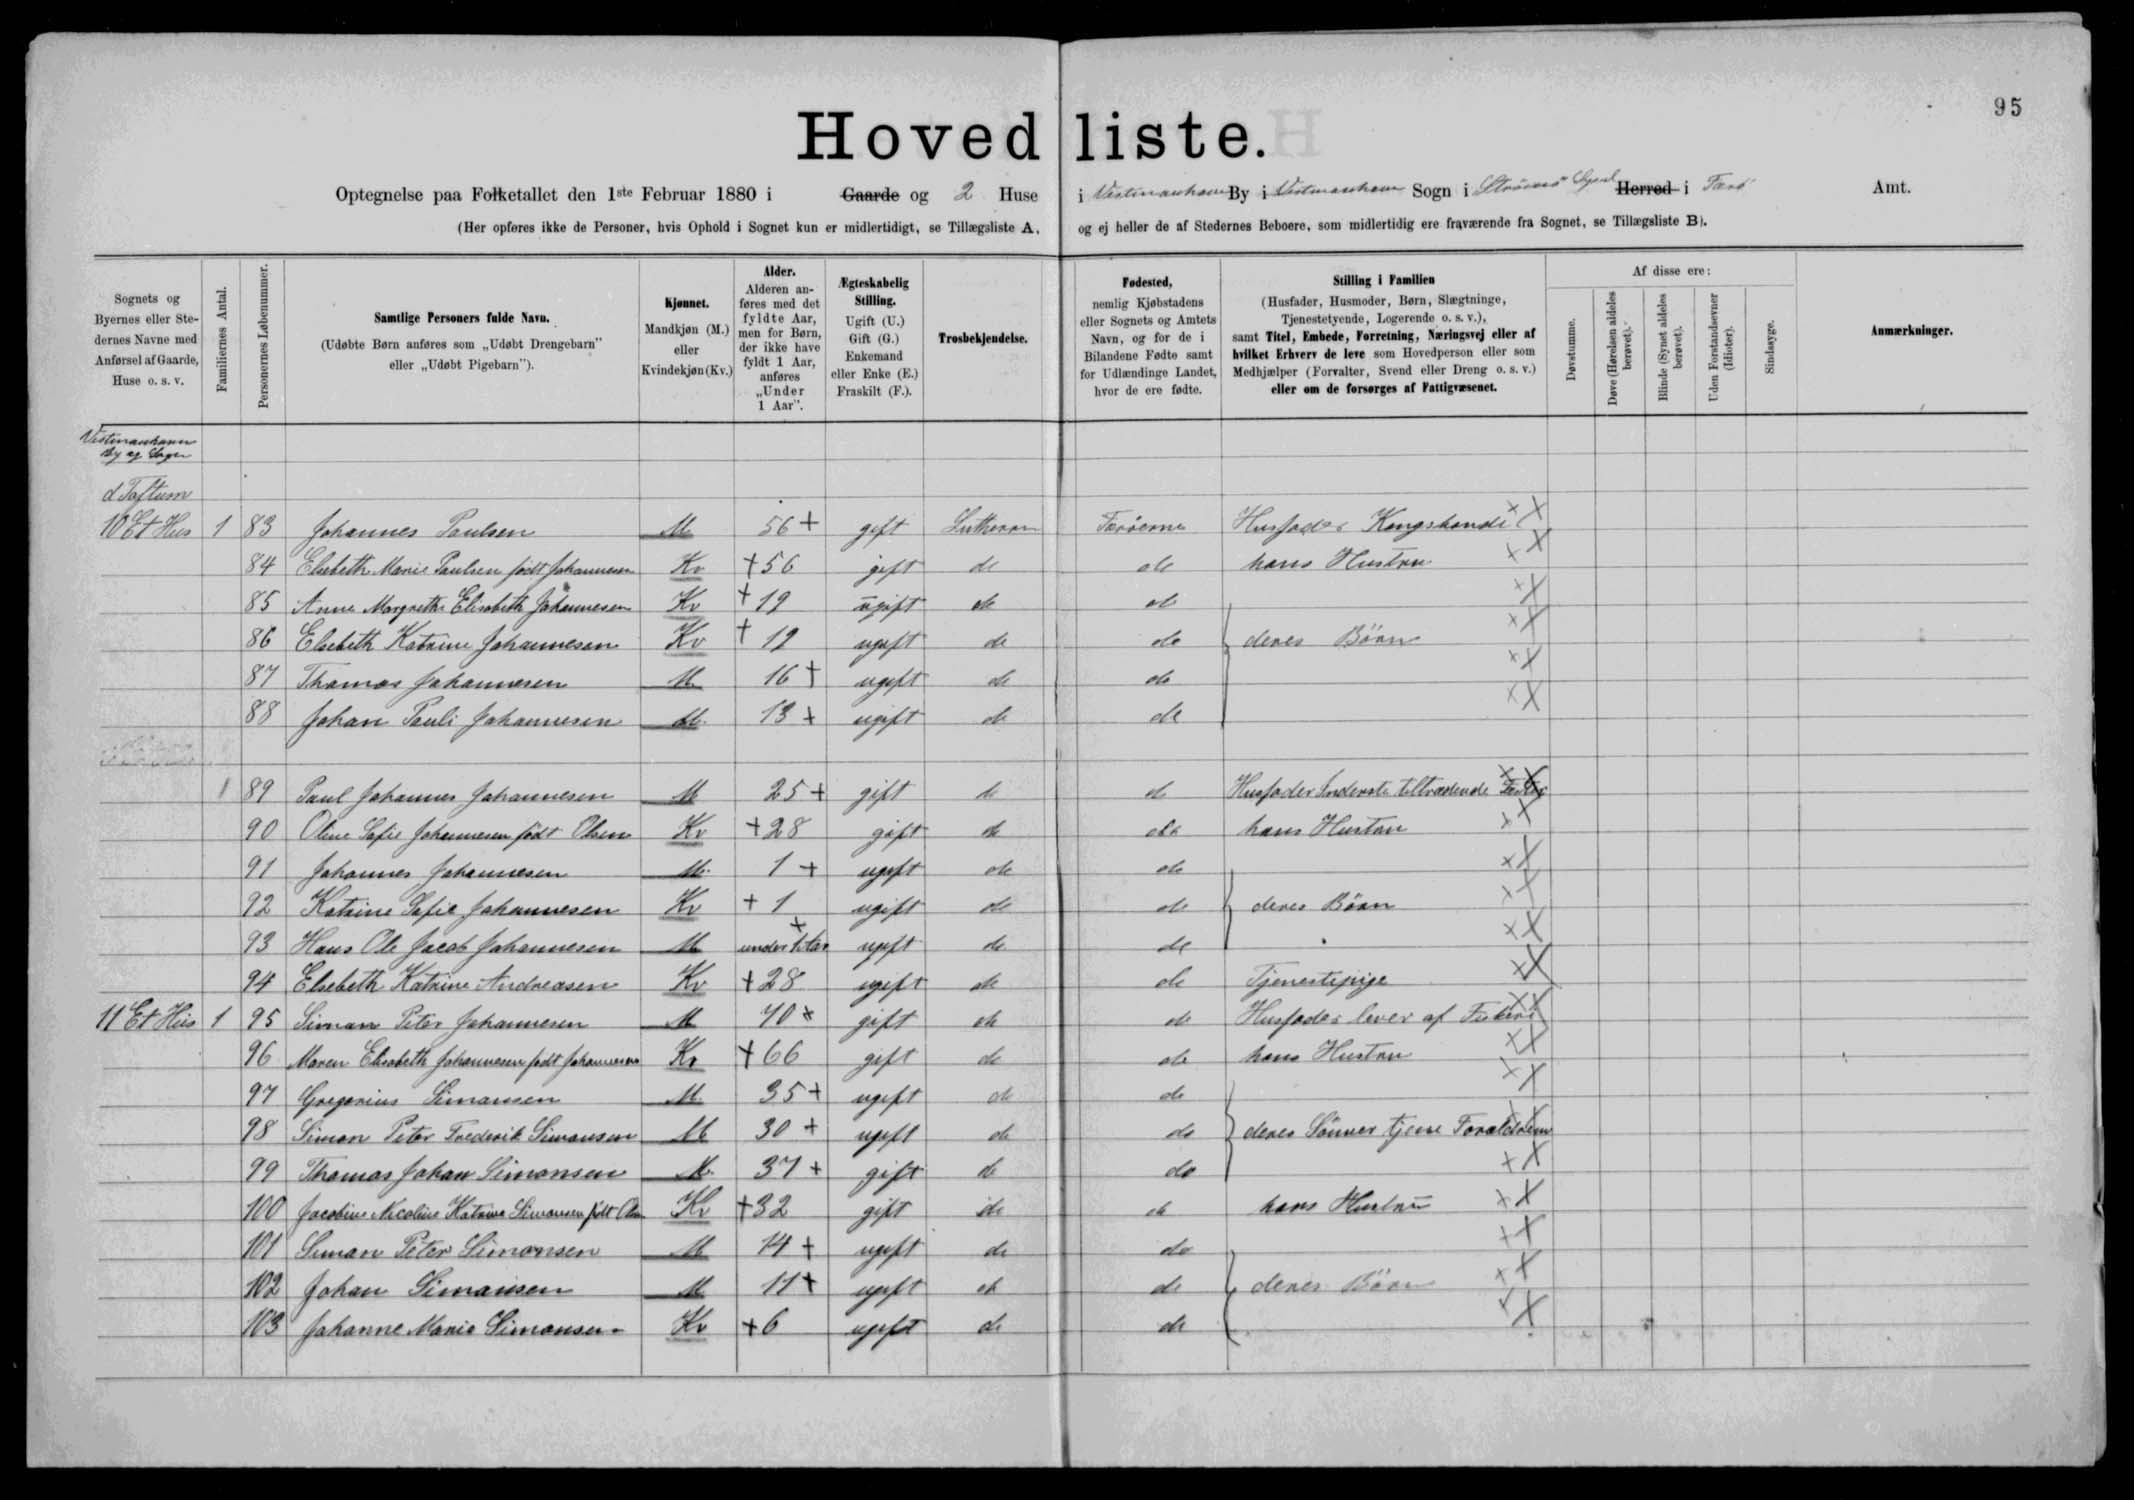 95
Hovedliste.
Optegnelse paa Folketallet den 1ste Februar 1880 i Gaarde og 2 Huse i Vestmanhavn By i Vestmanhavn Sogn i Strömö Syssel Herred i Færö Amt.
(Her opføres ikke de Personer, hvis Ophold i Sognet kun er midlertidigt, se Tillægsliste A, og ej heller de af Stedernes Beboere, som midlertidig ere fraværende fra Sognet, se Tillægsliste B).
Sognets og Byernes eller Stedernes Navne med Anførsel af Gaarde, Huse o. s. v.
Familiernes Antal.
Personernes Løbenummer.
Samtlige Personers fulde Navn.
(Udøbte Børn anføres som „Udøbt Drengebarn" eller „Udøbt Pigebarn").
Kjønnet.
Mandkjøn (M.) eller Kvindekjøn (Kv.)
Alder.
Alderen anføres med det fyldte Aar, men for Børn, der ikke have fyldt 1 Aar, anføres „Under 1 Aar".
Ægteskabelig Stilling.
Ugift (U.) Gift (G.) Enkemand eller Enke (E.) Fraskilt (F.).
Trosbekjendelse.
Fødested,
nemlig Kjøbstadens eller Sognets og Amtets Navn, og for de i Bilandene Fødte samt for Udlændinge Landet, hvor de ere fødte.
Stilling i Familien
(Husfader, Husmoder, Børn, Slægtninge, Tjenestetyende, Logerende o. s. v.),
samt Titel, Embede, Forretning, Næringsvej eller af hvilket Erhverv de leve som Hovedperson eller som Medhjælper (Forvalter, Svend eller Dreng o. s. v.) eller om de forsørges af Fattigvæsenet.
Af disse ere:
Døvstumme.
Døve (Hørelsen aldeles berøvet).
Blinde (Synet aldeles berøvet).
Uden Forstandsevner (Idioter).
Sindssyge.
Anmærkninger.
Vestmanhavn
By og Sogn
d Toftum
10 Et Hus 1 83 Johannes Poulsen M 56 + gift Lutheran Færöerne Husfader Kongsbonde
84 Elsebeth Marie Poulsen født Johannesen Kv + 56 gift do do hans Hustru
85 Anne Margrethe Elisabeth Johannesen Kv + 19 ugift do do
86 Elsebeth Katrine Johannesen Kv + 19 ugift do do deres Börn
87 Thomas Johannesen M 16 + ugift do do
88 Johan Pauli Johannesen M 13 + ugift do do
1 89 Poul Johannes Johannesen M 25 + gift do do Husfader Inderste tiltrædende Fæster
90 Oline Sofie Johannesen født Olsen Kv + 28 gift do do hans Hustru
91 Johannes Johannesen M 1 + ugift do do
92 Katrine Sofie Johannesen Kv + 1 ugift do do deres Börn
93 Hans Ole Jacob Johannesen M under 1 Aar + ugift do do
94 Elsebeth Katrine Andreasen Kv + 28 ugift do do Tjenestepige
11 Et Hus 1 95 Simon Peter Johannesen M 70 + gift do do Husfader lever af Fiskeri
96 Maren Elisabeth Johannesen født Johannesen Kv + 66 gift do do hans Hustru
97 Gregorius Simonsen M 35 + ugift do do
98 Simon Peter Frederik Simonsen M 30 + ugift do do deres Sönner tjene Forældrene
99 Thomas Johan Simonsen M 37 + gift do do
100 Jacobine Nicoline Katrine Simonsen født Olsen Kv + 32 gift do do hans Hustru
101 Simon Peter Simonsen M 14 + ugift do do
102 Johan Simonsen M 11 + ugift do do deres Börn
103 Johanne Marie Simonsen Kv + 6 ugift do do